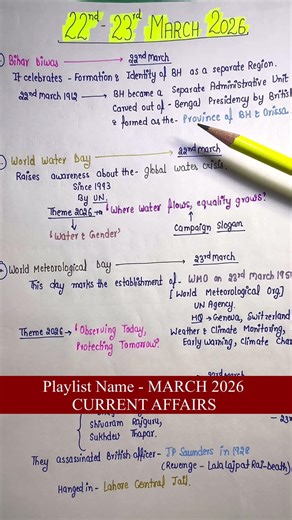 22nd - 23rd MARCH 2026.
Bihar Diwas → 22nd march
It celebrates - Formation & Identity of BH as a separate Region.
22nd march 1912 → BH became a Separate Administrative Unit
Carved out of - Bengal Presidency by Briti
& formed as the - Province of BH & Orissa.
World Water Day → 22nd march
Raises awareness about the - global water crisis.
Since 1993
By UN.
Theme 2026 → 'Where Water flows, equality grows'
'Water & Gender'
Campaign Slogan
World Meteorological Day → 23rd march
This day marks the establishment of - WMO on 23rd March 195
[World Meteorological Org]
UN Agency.
HQ → Geneva, Switzerland
Theme 2026 → 'Observing Today,
Protecting Tomorrow'
Weather & Climate Monitoring,
Early Warning, Climate Cha
Playlist Name - MARCH 2026
CURRENT AFFAIRS
Shivaram Rajguru,
Sukhdev Thapar.
They assassinated British officer - JP Saunders in 1928
(Revenge - Lala Lajpat Rai - Death)
Hanged in - Lahore Central Jail.